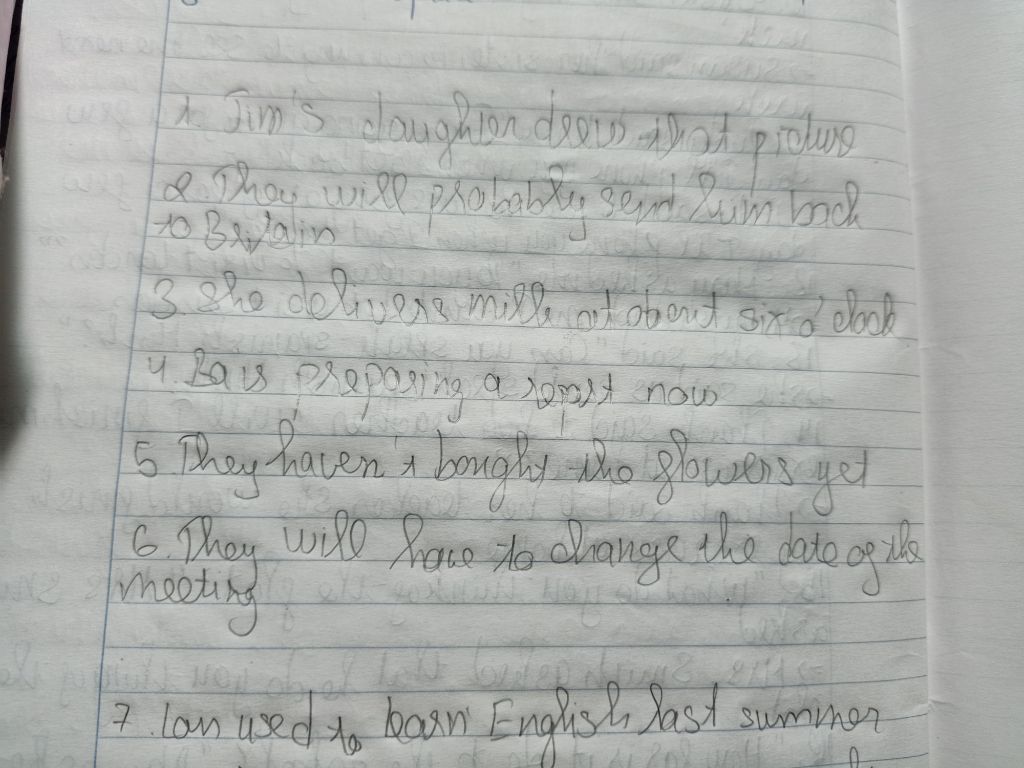 1. Jim's daughter drew that picture
2. They will probably send him back
to Britain
3. She delivers milk at about six o' clock
4. Ba is preparing a report now
5 They haven't bought the flowers yet
6. They will have to change the date of the
meeting
7. Lan used to learn English last summer